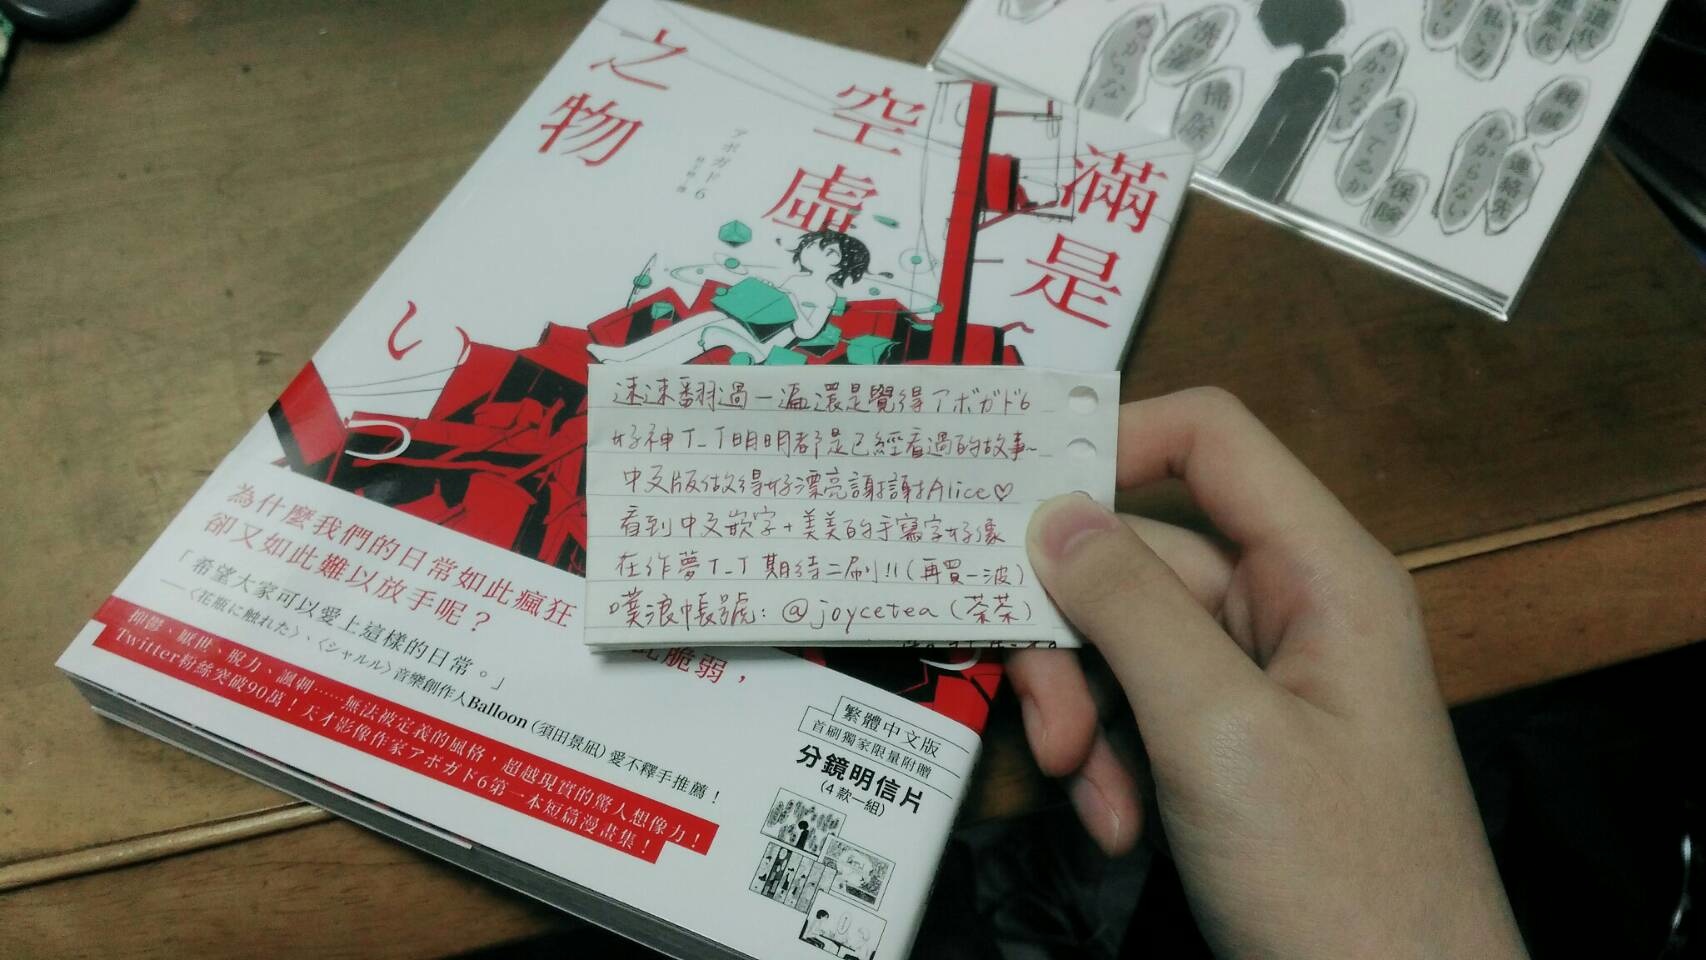 滿是
空虛
之物
アボガド6
い
っ
速速翻過一遍還是覺得アボガド6
好神T_T明明都是已經看過的故事~
中文版做得好漂亮謝謝Alice♡
看到中文嵌字+美美的手寫字好像
在作夢T_T期待二刷!!(再買一波)
噗浪帳號:@joycetea(茶茶)
為什麼我們的日常如此瘋狂
此脆弱,
卻又如此難以放手呢?
「希望大家可以愛上這樣的日常。」
——〈花瓶に触れた〉、〈シャルル〉音樂創作人Balloon(須田景凪)愛不釋手推薦!
抑鬱、厭世、脫力、諷刺……無法被定義的風格,超越現實的驚人想像力!
Twitter粉絲突破90萬!天才影像作家アボガド6第一本短篇漫畫集!
繁體中文版
首刷獨家限量附贈
分鏡明信片
(4款一組)
洗濯
わからない
掃除
わからない
入ってるか
保険
わからない
連絡先
親戚
払い方
電気代
水道代